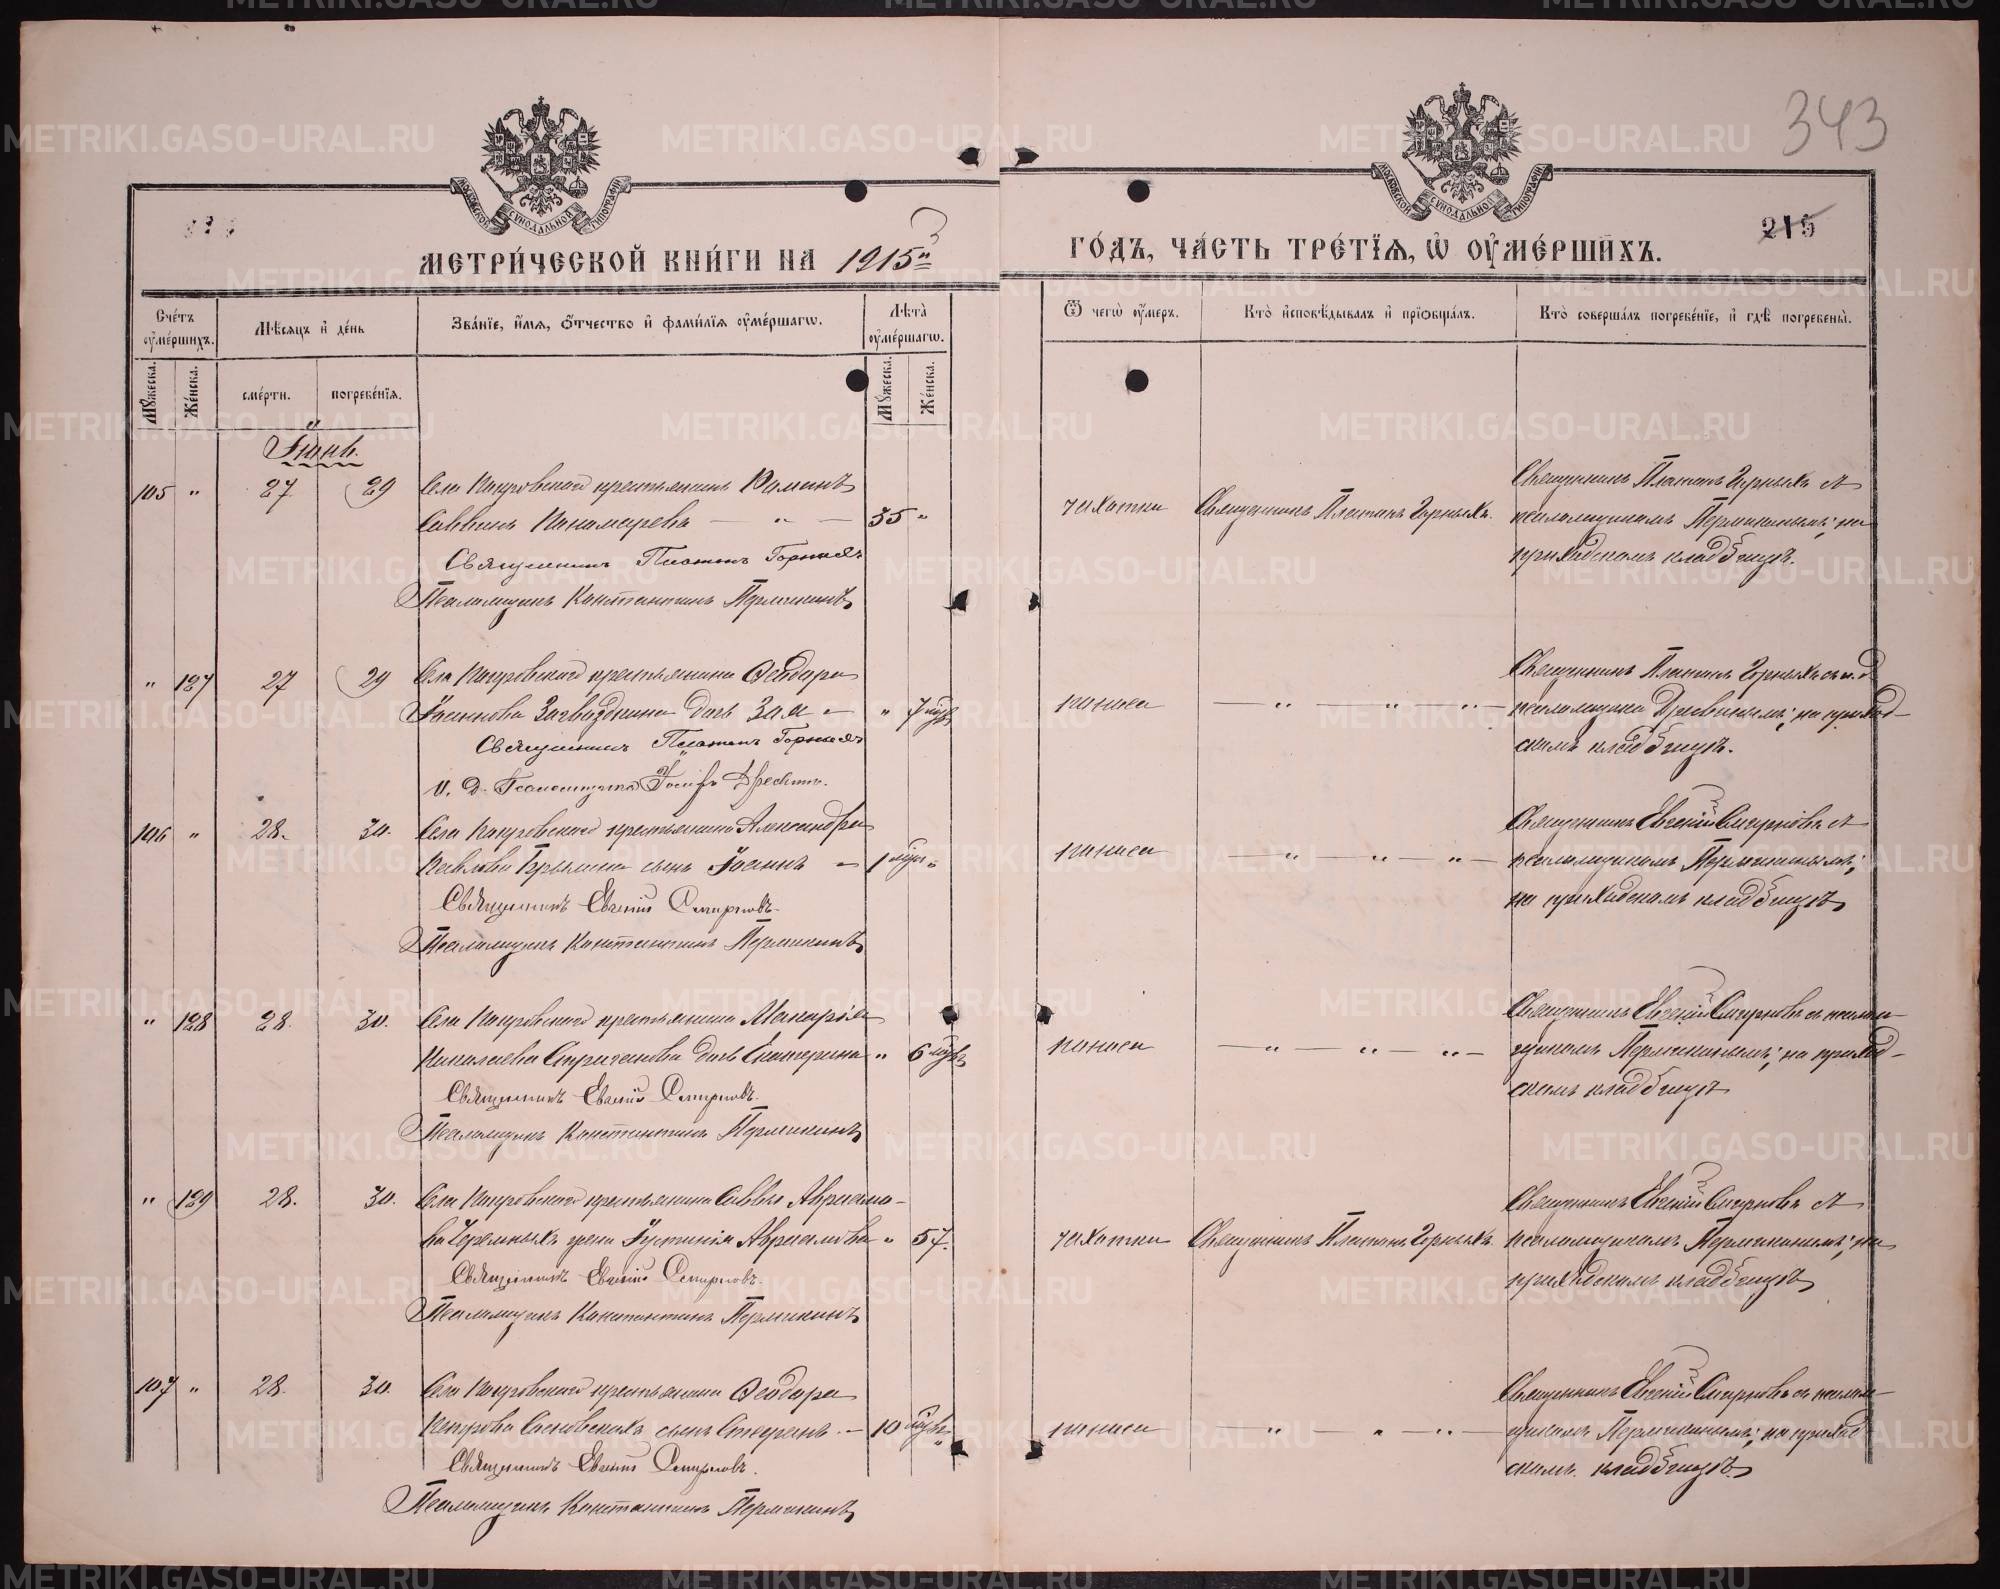 343
215
МЕТРИЧЕСКОЙ КНИГИ НА 1915й
ГОДЪ, ЧАСТЬ ТРЕТІЯ, Ѡ ОУМЕРШИХЪ.
Счетъ оумершихъ.
Мѣсяцъ и день
Званіе, имя, отчество и фамилія оумершагѡ.
Лѣта оумершагѡ.
Ѿ чегѡ оумеръ.
Кто исповѣдывалъ и пріобщалъ.
Кто совершалъ погребеніе, и гдѣ погребены.
Мужеска.
Женска.
смерти.
погребенія.
Мужеска.
Женска.
Іюнь.
105 " 27 29 Села Покровскаго крестьянинъ Романъ
Саввинъ Пономаревъ — " — 35 "
Священникъ Платонъ Горныхъ
Псаломщикъ Константинъ Пермикинъ
чахотки
Священникъ Платонъ Горныхъ.
Священникъ Платонъ Горныхъ съ
псаломщикомъ Пермикинымъ; на
приходскомъ кладбищѣ.
" 127 27 29 Села Покровскаго крестьянина Ѳеодора
Іоаннова Загвоздкина дочь Зоя — " 7 мѣс.
Священникъ Платонъ Горныхъ
И. д. Псаломщика Іосифъ
поноса
Священникъ Платонъ Горныхъ съ и. д.
псаломщика на приход-
скомъ кладбищѣ.
106 " 28. 30. Села Покровскаго крестьянина Александра
Павлова сынъ Іоаннъ — 1 "
Священникъ Евгеній Смирновъ.
Псаломщикъ Константинъ Пермикинъ
поноса
Священникъ Евгеній Смирновъ съ
псаломщикомъ Пермикинымъ;
на приходскомъ кладбищѣ
" 128 28. 30. Села Покровскаго крестьянина Макарія
Николаева Стриганова дочь Екатерина " 6 мѣс.
Священникъ Евгеній Смирновъ.
Псаломщикъ Константинъ Пермикинъ
поноса
Священникъ Евгеній Смирновъ съ псалом-
щикомъ Пермикинымъ; на приход-
скомъ кладбищѣ
" 129 28. 30. Села Покровскаго крестьянина Саввы Авраамо-
ва Черемныхъ жена Іустинія Авраамова " 57.
Священникъ Евгеній Смирновъ.
Псаломщикъ Константинъ Пермикинъ
чахотки
Священникъ Платонъ Горныхъ.
Священникъ Евгеній Смирновъ съ
псаломщикомъ Пермикинымъ; на
приходскомъ кладбищѣ
107 " 28. 30. Села Покровскаго крестьянина Ѳеодора
Петрова Сосновскихъ сынъ Стефанъ. — 10 мѣс. "
Священникъ Евгеній Смирновъ.
Псаломщикъ Константинъ Пермикинъ
поноса
Священникъ Евгеній Смирновъ съ псалом-
щикомъ Пермикинымъ; на приход
скомъ кладбищѣ.